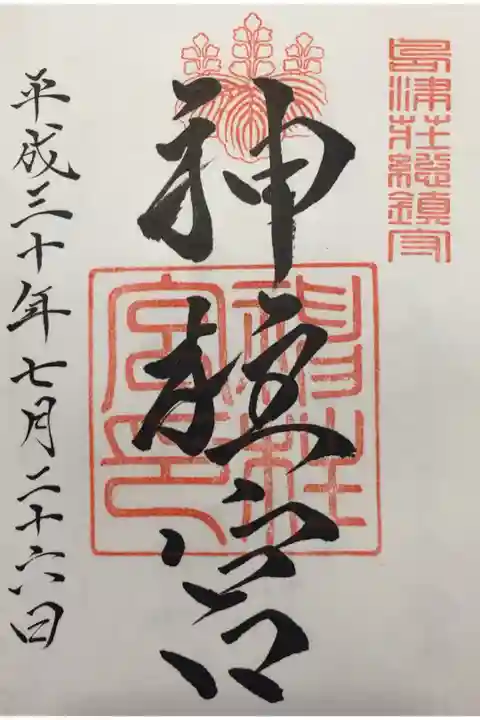 島津荘總鎮守
神柱宮
神柱宮印
平成三十年七月二十六日